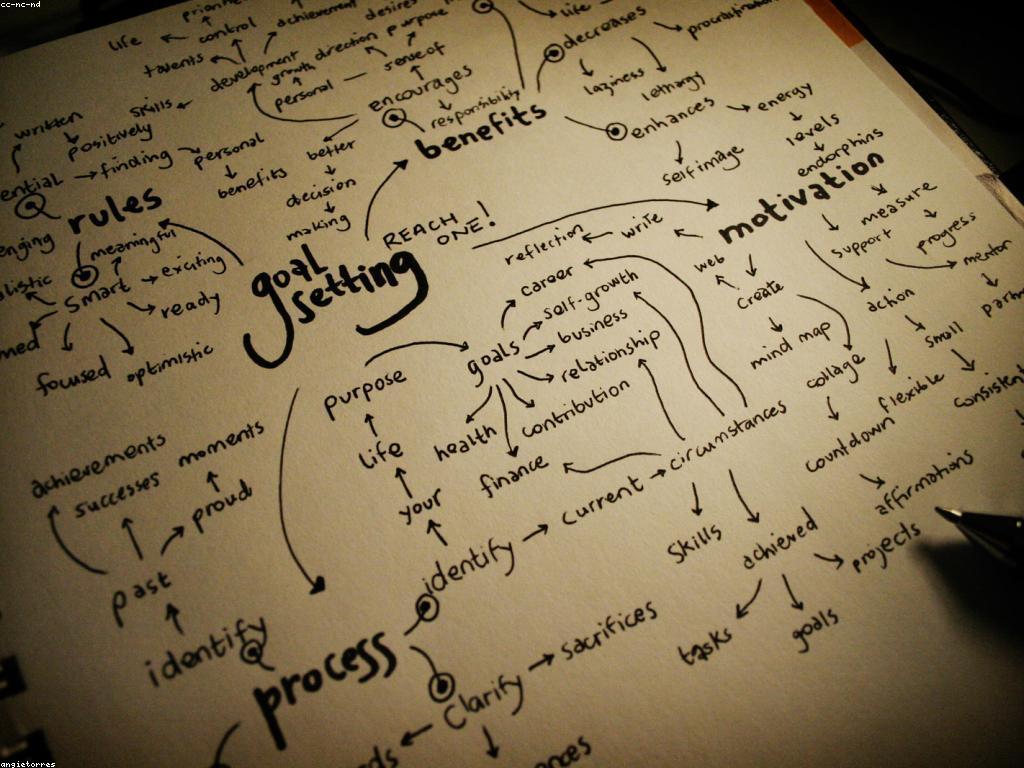 cc-nc-nd
life
control
achievement
desires
purpose
life
decreases
procrastination
talents
development
growth
direction
sense of
laziness
lethargy
skills
personal
encourages
responsibility
benefits
enhances
energy
levels
endorphins
written
positively
finding
personal
benefits
better
decision
making
self image
rules
meaningful
smart
exciting
ready
focused
optimistic
goal
setting
REACH
ONE!
motivation
reflection
write
web
create
mind map
collage
countdown
affirmations
measure
progress
support
mentor
action
small
flexible
consistent
purpose
goals
career
self-growth
business
relationship
contribution
health
finance
life
your
identify
current
circumstances
skills
achieved
projects
tasks
goals
achievements
successes
moments
proud
past
identify
process
Clarify
sacrifices
angietorres